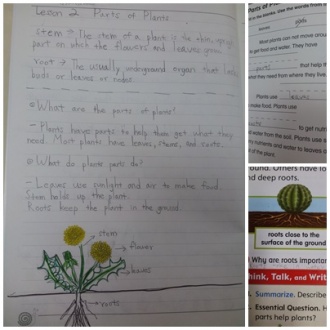 Lesson 2 Parts of Plants
Stem → The stem of a plant is the
part on which the flowers and leaves grow.
root → The usually underground organ that lacks
buds or leaves or nodes
What are the parts of plants?
- Plants have parts to help them get what they
need. Most plants have leaves, stems, and roots.
What do plants parts do?
- Leaves use sunlight and air to make food.
Stem holds up the plant.
Roots keep the plant in the ground.
stem
flower
leaves
roots
Parts of Plants
in the blanks. Use the words from
Most plants can not move around
to get food and water. They have
parts that help
they need from where they live.
Plants use
make food. Plants use
to get
water from the soil. Plants use
nutrients and water to leaves
of the plant.
ound. Others have
nd deep roots.
roots close to the
surface of the ground
Why are roots important
hink, Talk, and Write
Summarize. Describe
Essential Question.
parts help plants?